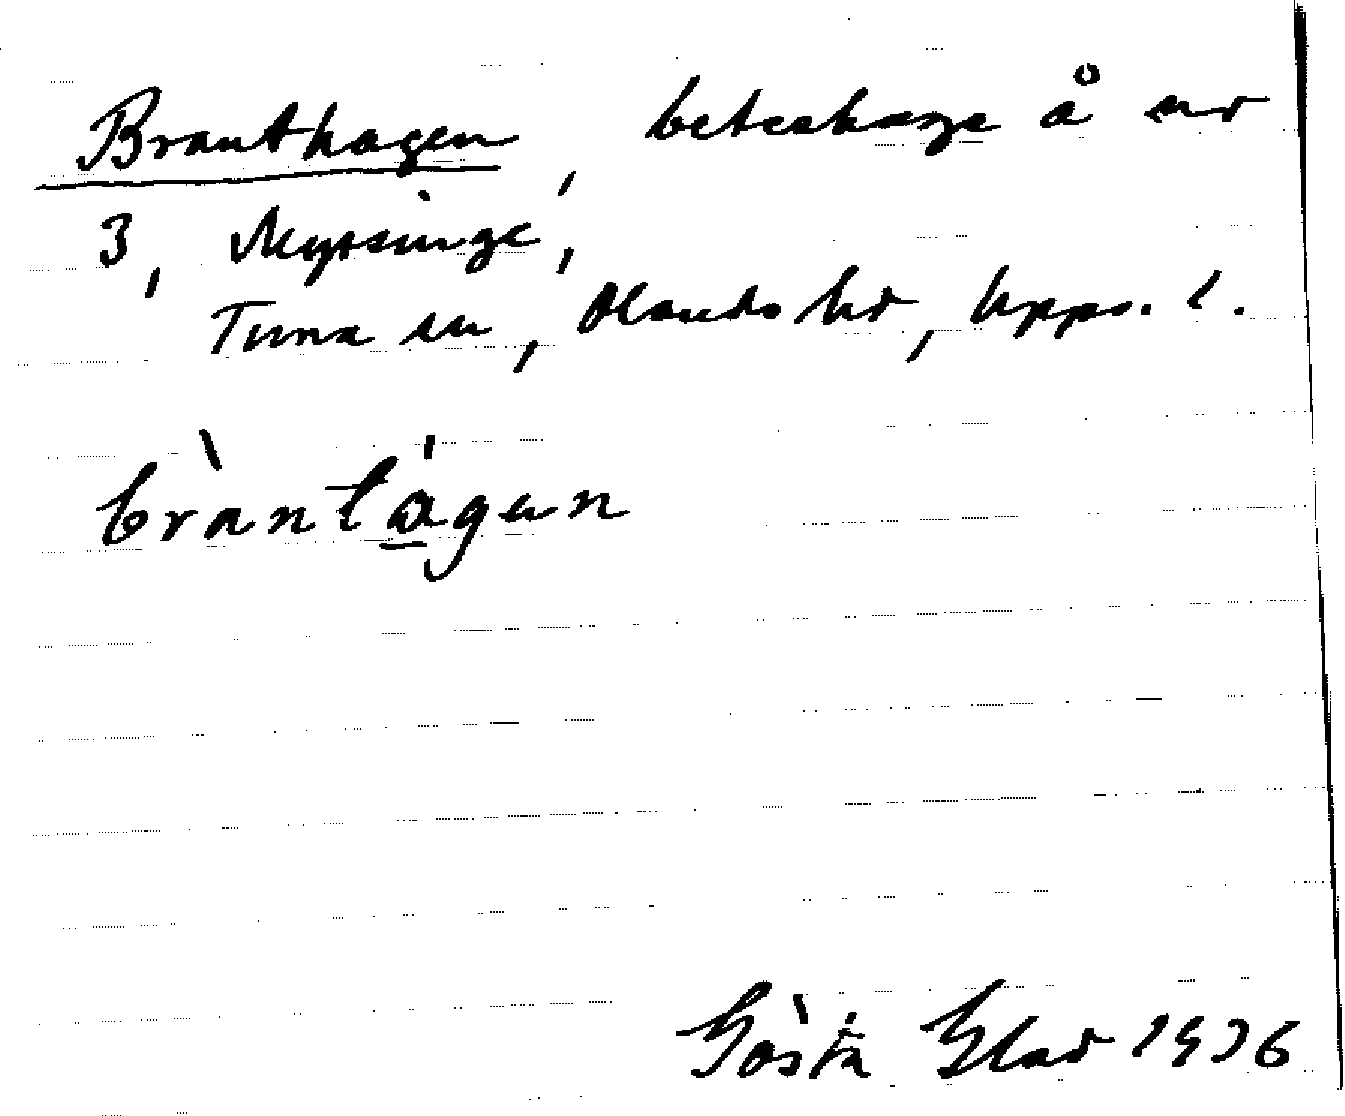 Branthagen, beteshage å nr
3, Myssinge,
Tuna sn, Olands hd, Upps. l.
bràntágen
Gösta Elar 1936